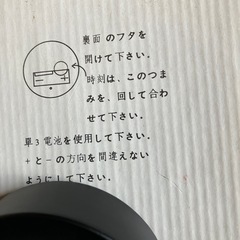 裏面のフタを
開けて下さい。
時刻は、このつま
みを、回して合わ
せて下さい。
単3電池を使用して下さい。
+と-の方向を間違えない
ようにして下さい。